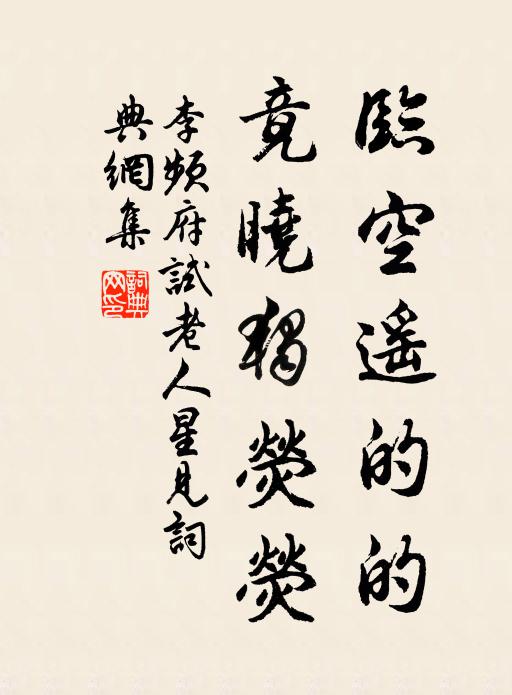 臨空遥的的
竟曉獨熒熒
李頻府試老人星見詞
典網集
詞典
网印